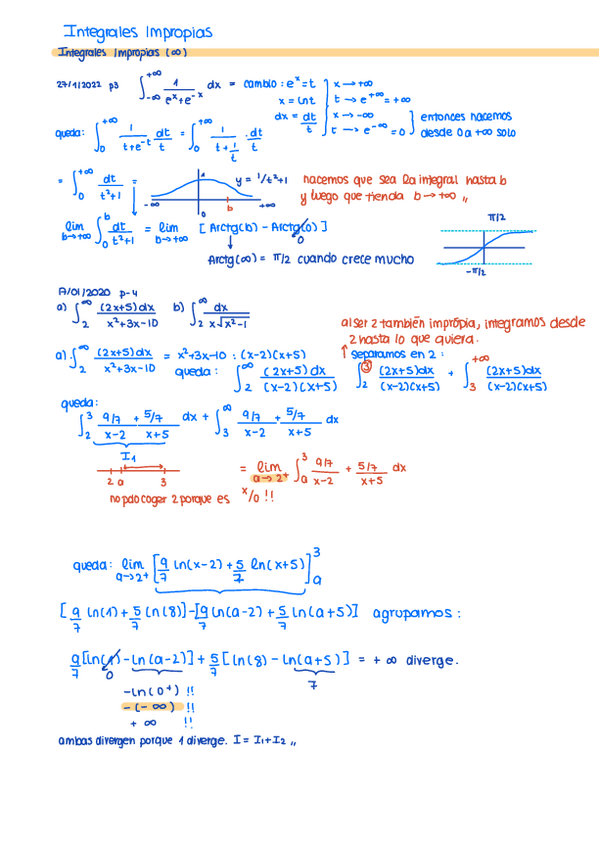 Integrales Impropias
Integrales Impropias (∞)
27/1/2022 p3 ∫_{-∞}^{+∞} 1/(e^x+e^{-x}) dx = cambio: e^x=t } x → +∞
x = lnt } t → e^{+∞} = +∞
dx = dt/t } x → -∞ } entonces hacemos
t → e^{-∞} = 0 } desde 0 a +∞ solo
queda: ∫_0^{+∞} 1/(t+e^{-t}) dt/t = ∫_0^{+∞} 1/(t+1/t) · dt/t
= ∫_0^{+∞} dt/(t²+1) =
1 y = 1/t²+1
-∞ 0 b +∞
hacemos que sea la integral hasta b
y luego que tienda b → +∞ ,,
lim_{b→+∞} ∫_0^b dt/(t²+1) = lim_{b→+∞} [Arctg(b) - Arctg(0)]
0
Arctg(∞) = π/2 cuando crece mucho
π/2
-π/2
17/01/2020 p-4
a) ∫_2^∞ (2x+5)dx/(x²+3x-10) b) ∫_2^∞ dx/(x√(x²-1))
al ser 2 también imprópia, integramos desde
2 hasta lo que quiera.
↑ separamos en 2:
a) ∫_2^∞ (2x+5)dx/(x²+3x-10) = x²+3x-10 : (x-2)(x+5)
queda: ∫_2^∞ (2x+5)dx/((x-2)(x+5)) ∫_2^3 (2x+5)dx/((x-2)(x+5)) + ∫_3^{+∞} (2x+5)dx/((x-2)(x+5))
queda:
∫_2^3 (9/7)/(x-2) + (5/7)/(x+5) dx + ∫_3^∞ (9/7)/(x-2) + (5/7)/(x+5) dx
I₁
2 a 3
= lim_{a→2⁺} ∫_a^3 (9/7)/(x-2) + (5/7)/(x+5) dx
no pdo coger 2 porque es x/0 !!
queda: lim_{a→2⁺} [9/7 ln(x-2) + 5/7 ln(x+5)]_a^3
[9/7 ln(1) + 5/7 ln(8)] - [9/7 ln(a-2) + 5/7 ln(a+5)] agrupamos:
9/7 [ln(1) - ln(a-2)] + 5/7 [ln(8) - ln(a+5)] = + ∞ diverge.
0
7
-ln(0⁺) !!
-(-∞) !!
+ ∞ !!
ambas divergen porque 1 diverge. I = I₁+I₂ ,,